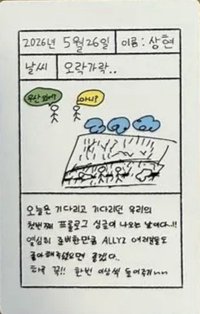 2026년 5월 26일 이름: 상현
날씨 오락가락..
우산 피해?
아니?
오늘은 기다리고 기다리던 우리의
첫번째 프롤로그 싱글이 나오는 날이다..!!
열심히 준비한만큼 ALLYZ 여러분들도
좋아해주셨으면 좋겠다..
꼭!! 한번 이상씩 들어주기~~